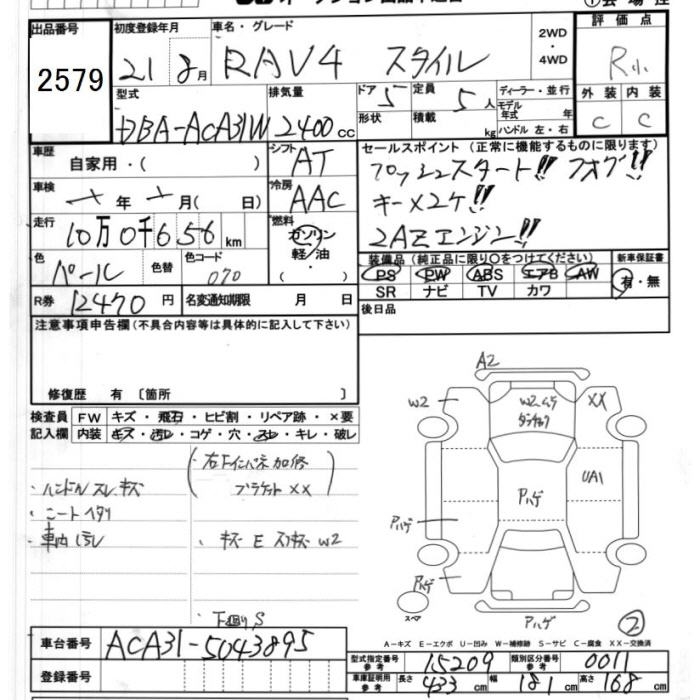 出品番号 初度登録年月 車名・グレード 2WD・4WD 評価点
2579 21 8月 RAV4 スタイル R
型式 排気量 ドア 5 定員 5人 ディーラー・並行 外装 内装
DBA-ACA31W 2400cc 形状 積載 kg モデル年式 年 ハンドル 左・右 C C
車歴 自家用・( ) シフト AT セールスポイント(正常に機能するものに限ります)
プッシュスタート!! フォグ!!
車検 年 月( 日) 冷房 AAC キー×2ケ!!
走行 10万0千656km 燃料 ガソリン・軽油・( ) 2AZエンジン!!
色 パール 色替 色コード 070 装備品(純正品に限り○をつけてください) 新車保証書
PS PW ABS エアB AW 有・無
SR ナビ TV カワ
R券 12470円 名変通知期限 月 日 後日品
注意事項申告欄(不具合内容等は具体的に記入して下さい)
修復歴 有〔箇所 〕
検査員 FW キズ・飛石・ヒビ割・リペア跡・×要
記入欄 内装 キズ・汚れ・コゲ・穴・スレ・キレ・破レ
・右Fインパネ加修
ブラケット××
・ハンドルスレキズ
・シートヘタリ
・車内汚レ
・キズ E スリキズ W2
・下廻りS
A2
W2 W2ムラ ××
UA1
Pハゲ
Pハゲ
Pハゲ
スペア Pハゲ 2
A-キズ E-エクボ U-凹み W-補修跡 S-サビ C-腐食 XX-交換済
車台番号 ACA31-5043895
登録番号
型式指定番号 参考 15209 類別区分番号 参考 0011
車庫証明用 参考 長さ 433cm 幅 181cm 高さ 168cm